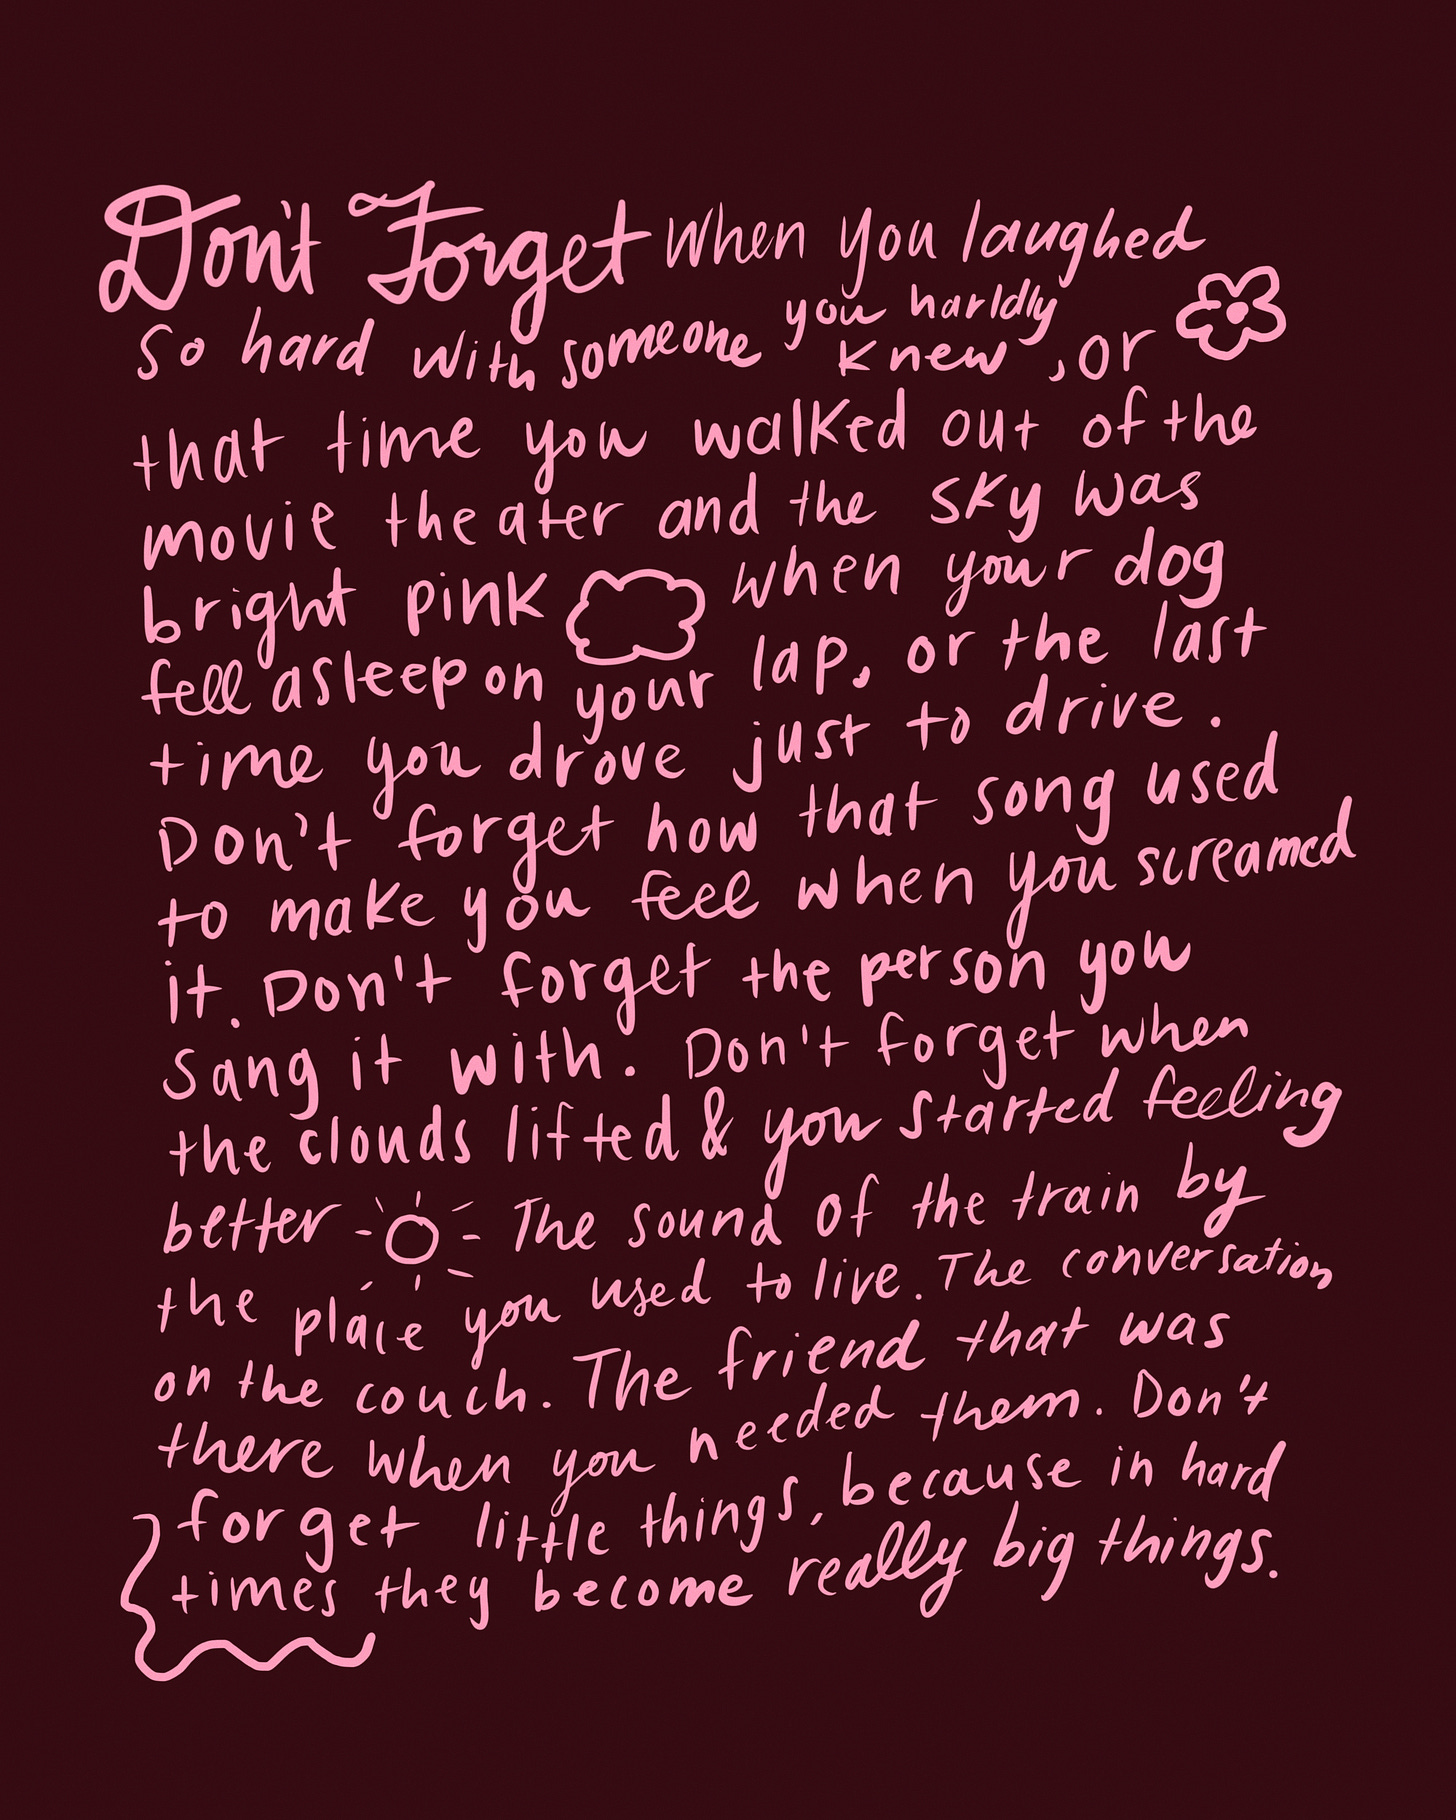 Don't Forget when you laughed
so hard with someone you harldly knew, or
that time you walked out of the
movie theater and the sky was
bright pink when your dog
fell asleep on your lap, or the last
time you drove just to drive.
Don't forget how that song used
to make you feel when you screamed
it. Don't forget the person you
sang it with. Don't forget when
the clouds lifted & you started feeling
better The sound of the train by
the place you used to live. The conversation
on the couch. The friend that was
there when you needed them. Don't
forget little things, because in hard
times they become really big things.